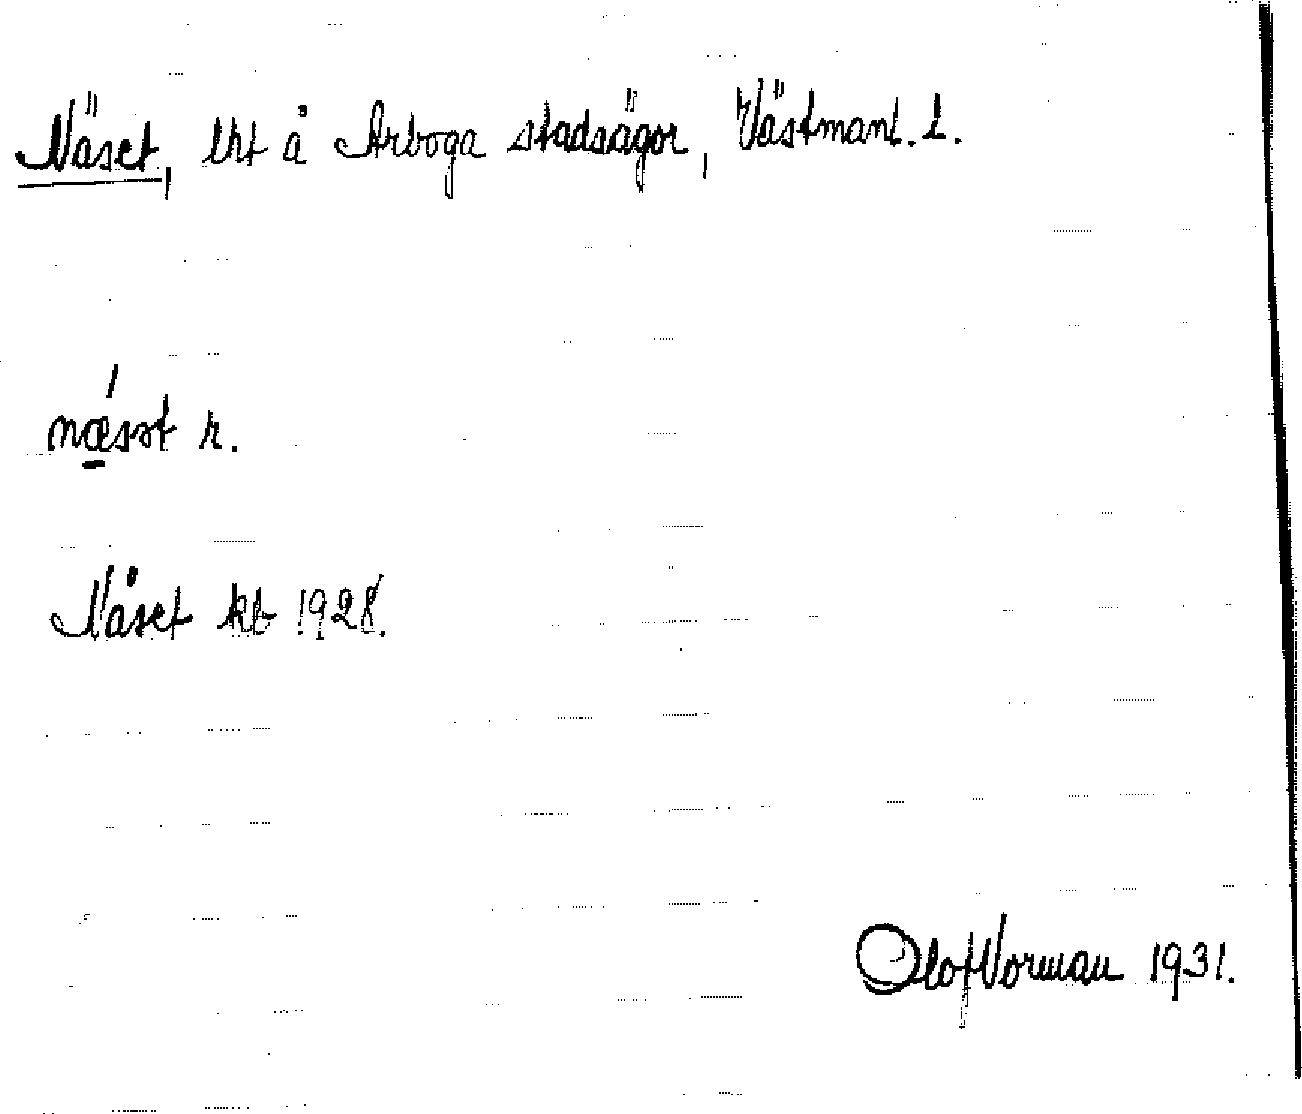 Näset, lht å Arboga stadsägor, Västmanl. l.
næsət r.
Nåset kb 1928.
Olof Norman 1931.